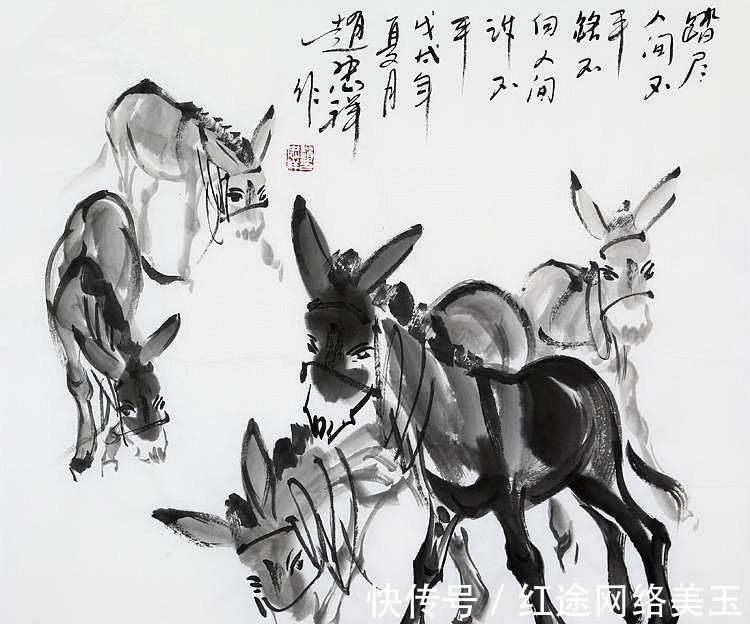 踏尽
人间不
平
路不
向人间
诉不
平
戊戌年
夏月
趙忠祥
作
快传号 / 红途网络美玉